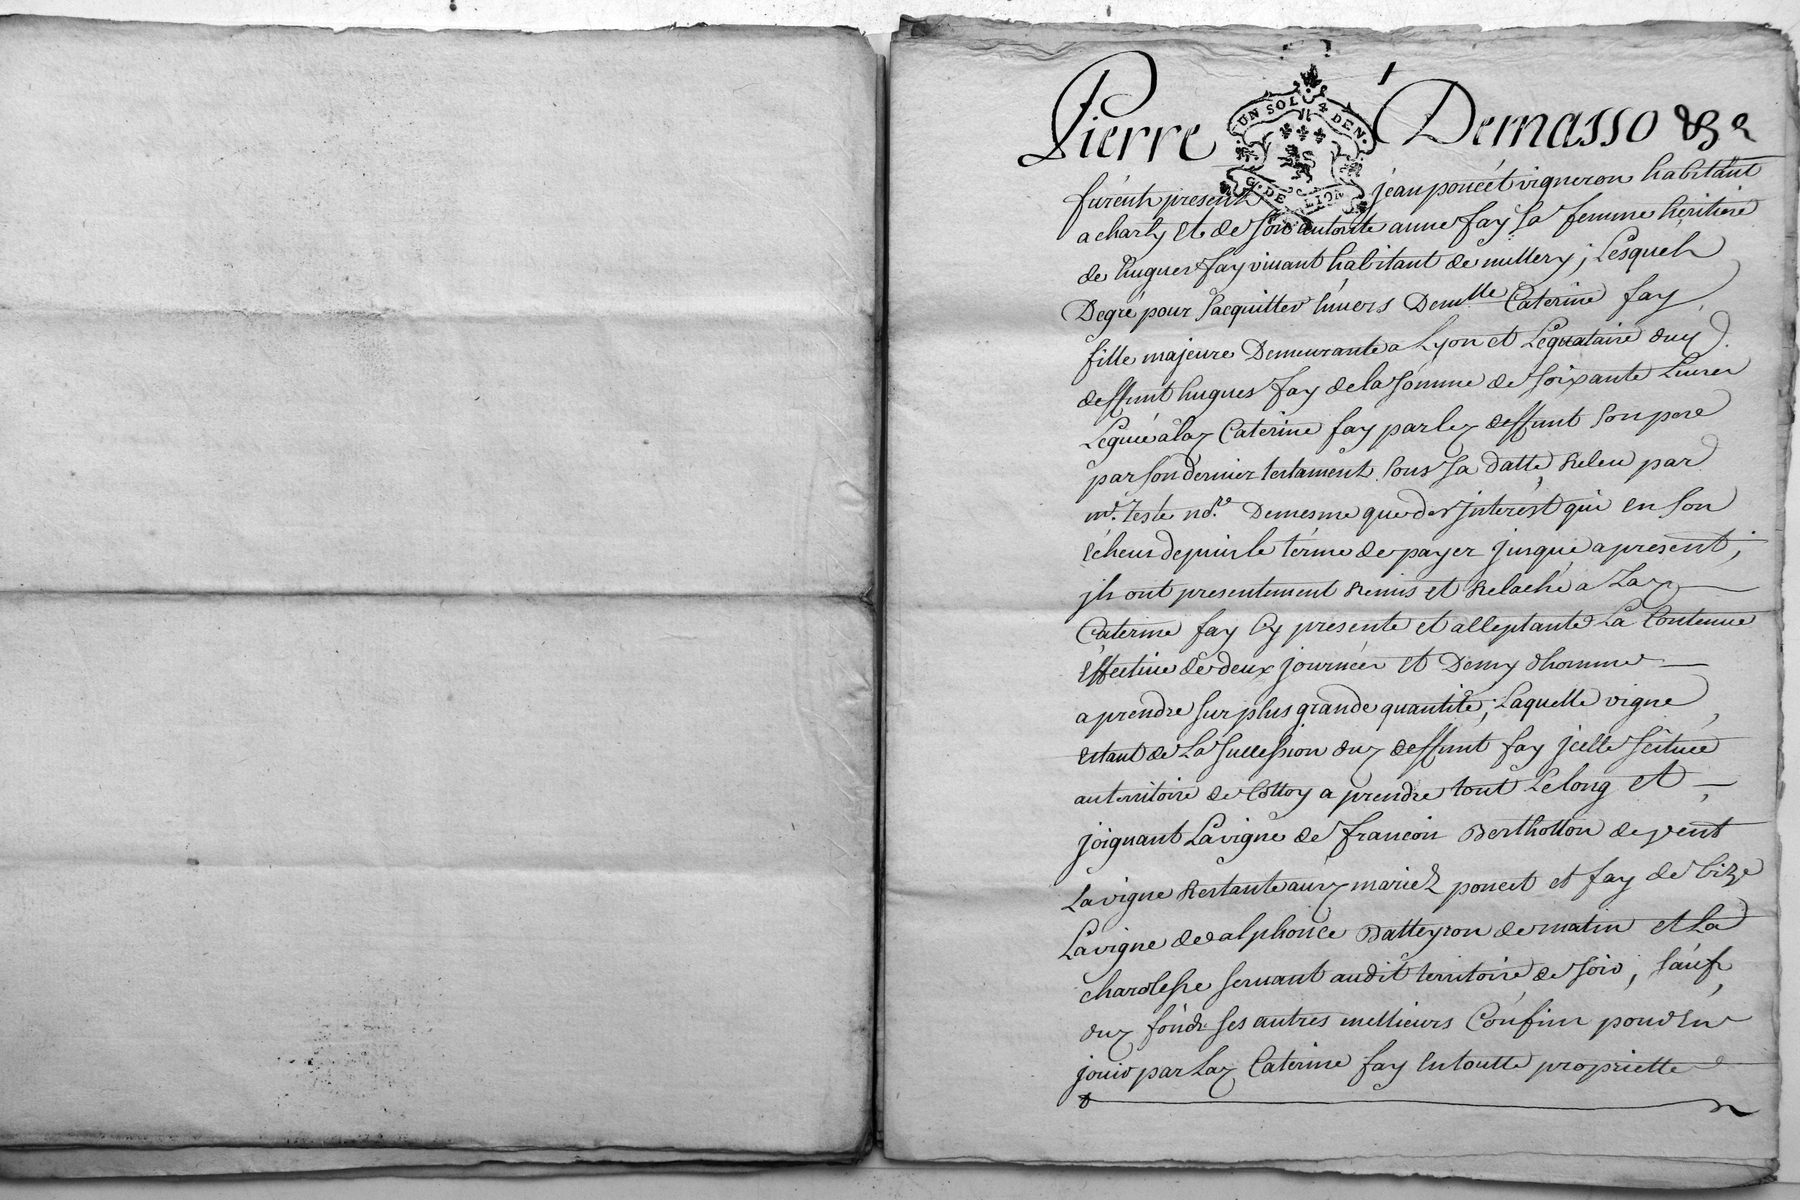 Pierre Demasso &ca
UN SOL 4 DEN.
G. DE LION
furent present jean poncet vigneron habitant
a charly et de son autorite anne fay sa femme heritiere
de hugues fay vivant habitant de millery; Lesquels
Degré pour sacquitter envers Demlle Caterine fay
fille majeure Demeurante a Lyon et Leguataire duy
deffunt hugues fay de la somme de soixante Livres
Leguée a lay Caterine fay par ley deffunt son pere
par son dernier testament sous sa datte Releu par
me. Teste nore. Demesme que des jnterest qui en son
écheus depuis le terme de payer jusque a present;
jls ont presentement Remis et Relaché a Lay
Caterine fay Cy presente et alleptante La Contenue
éffective de deux journées et Demy dhomme
a prendre sur plus grande quantité; Laquelle vigne
estant de La succession duy deffunt fay jcelle scituée
au territoire de Cottoy a prendre tout Le long et
joignant La vigne de francois Bertholton de vent
La vigne Restante auxy mariez poncet et fay de bize
La vigne de alphonce Batteyron de matin et La
charolesse servant audit territoire de soir, sauf
duy fonds ses autres mellieurs Confins pour en
jouir par Lay Caterine fay en toutte propriette